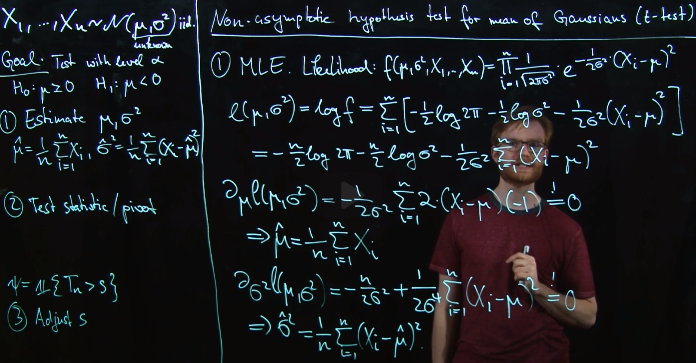 X₁, ..., Xₙ ~ N(μ, σ²) iid.
unknown
Goal: Test with level α
H₀: μ ≥ 0 H₁: μ < 0
① Estimate μ, σ²
μ̂ = 1/n Σᵢ₌₁ⁿ Xᵢ, σ̂² = 1/n Σᵢ₌₁ⁿ (Xᵢ - μ̂)²
② Test statistic / pivot
ψ = 𝟙{Tₙ > s}
③ Adjust s
Non-asymptotic hypothesis test for mean of Gaussians (t-test)
① MLE. Likelihood: f(μ, σ², X₁, ..., Xₙ) = ∏ᵢ₌₁ⁿ 1/√(2πσ²) · e^(-1/(2σ²) · (Xᵢ - μ)²)
ℓ(μ, σ²) = log f = Σᵢ₌₁ⁿ [-1/2 log 2π - 1/2 log σ² - 1/(2σ²) (Xᵢ - μ)²]
= -n/2 log 2π - n/2 log σ² - 1/(2σ²) Σᵢ₌₁ⁿ (Xᵢ - μ)²
∂_μ ℓ(μ, σ²) = -1/(2σ²) Σᵢ₌₁ⁿ 2·(Xᵢ - μ)(-1) =! 0
⇒ μ̂ = 1/n Σᵢ₌₁ⁿ Xᵢ
∂_σ² ℓ(μ, σ²) = -n/(2σ²) + 1/(2σ⁴) Σᵢ₌₁ⁿ (Xᵢ - μ)² =! 0
⇒ σ̂² = 1/n Σᵢ₌₁ⁿ (Xᵢ - μ̂)².